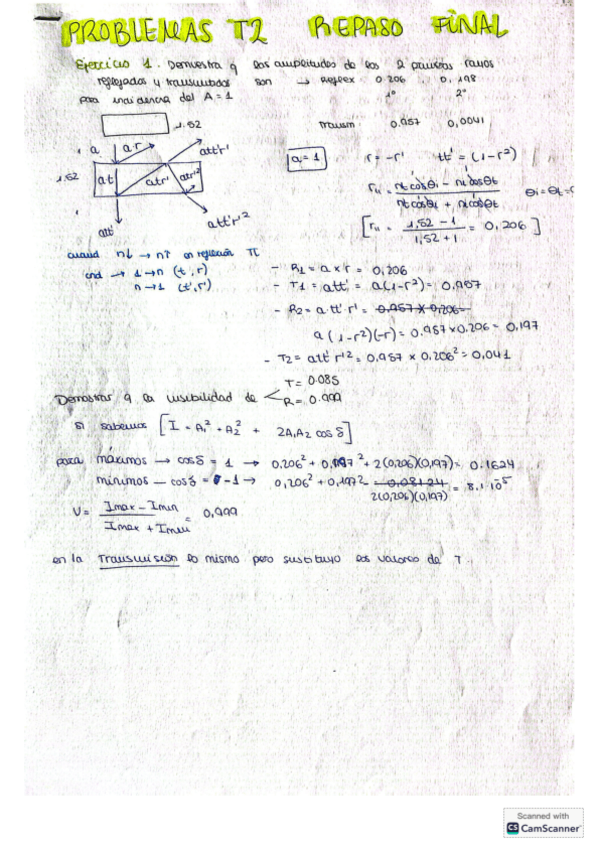 PROBLEMAS T2 REPASO FINAL
Ejercicio 1. Demuestra q las amplitudes de los 2 primeros rayos
reflejados y transmitidos son → Reflex 0.206 0,198
para incidencia del A=1 1º 2º
1.52 Transm 0.957 0,0041
1 a ar att'r' a=1 r=-r' tt'=(1-r²)
1.52 at atr' atr'² r₁₁ = nt cosθi - ni cosθt / nt cosθi + ni cosθt θi=θt=
1 att' att'r'² [r₁₁ = 1,52-1 / 1,52+1 = 0,206]
cuand n↓ → n↑ en reflexión π
cnd → 1→n (t,r)
n→1 (t',r')
- R1 = a×r = 0,206
- T1 = att' = a(1-r²) = 0,957
- R2 = a·tt'·r' = 0.957×0.206=
a(1-r²)(-r) = 0.957×0.206 = 0,197
- T2 = att'r'² = 0,957 × 0,206² = 0,041
Demostrar q la visibilidad de < T = 0.085
R = 0.999
Si sabemos [I = A₁² + A₂² + 2A₁A₂ cos δ]
para máximos → cosδ = 1 → 0,206² + 0,197² + 2(0,206)(0,197) = 0.1624
mínimos → cosδ = -1 → 0,206² + 0,197² - 0,08124 = 8.1·10⁻⁵
2(0,206)(0,197)
V = Imax - Imin / Imax + Imin = 0,999
en la Transmision lo mismo pero sustituyo los valores de T.
Scanned with
CS CamScanner